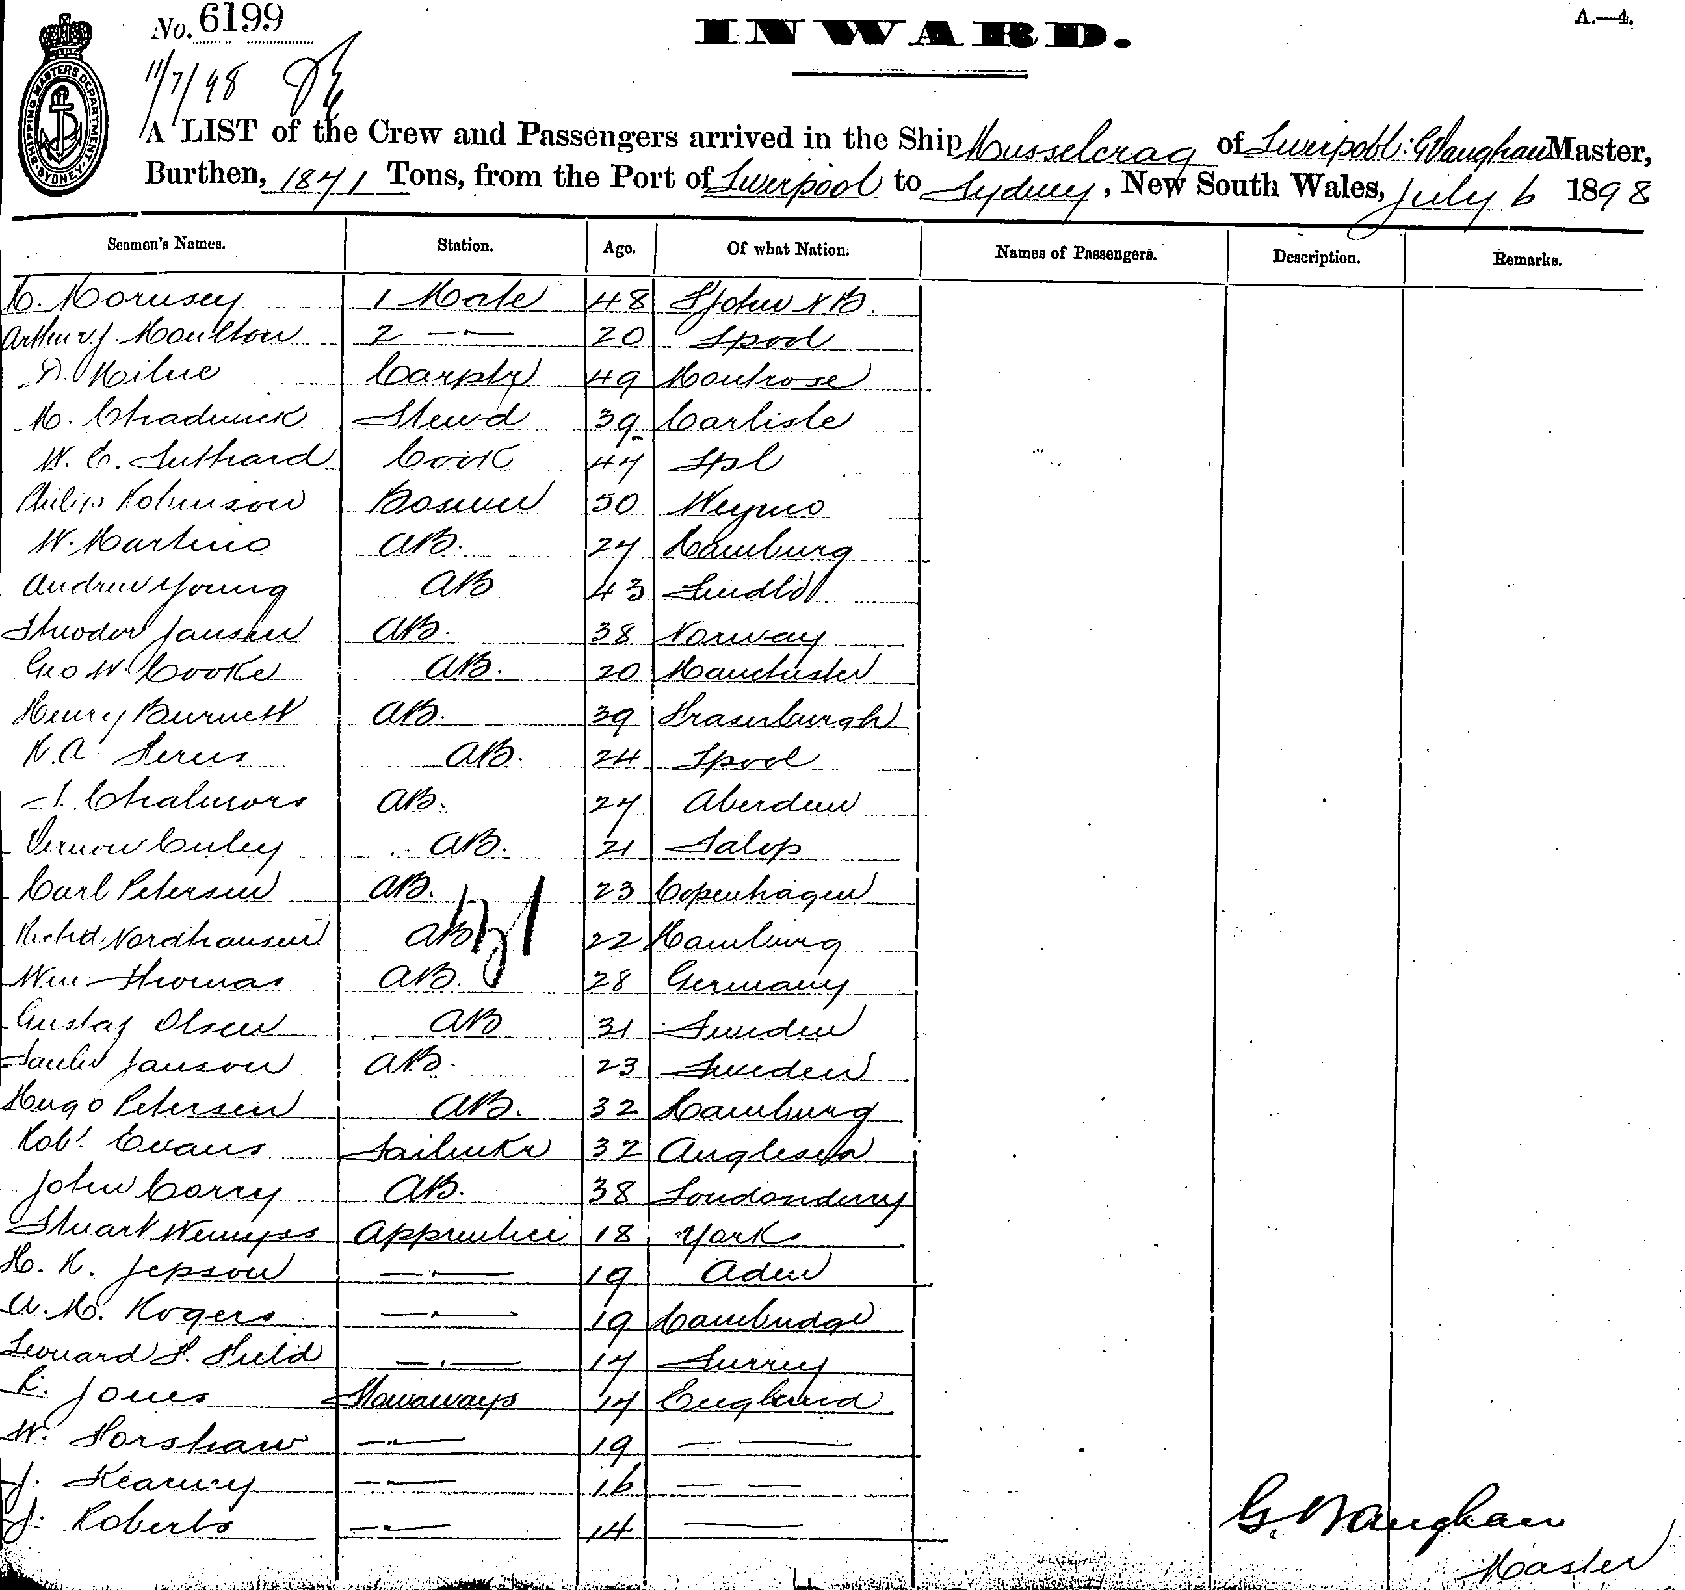 No. 6199
INWARD.
A.—4.
11/7/98
SHIPPING MASTERS DEPARTMENT SYDNEY
A LIST of the Crew and Passengers arrived in the Ship Musselcrag of Liverpool: G Vaughan Master,
Burthen, 1871 Tons, from the Port of Liverpool to Sydney, New South Wales, July 6 1898
Seamen's Names. Station. Age. Of what Nation. Names of Passengers. Description. Remarks.
1 Mate 48 St John NB.
Arthur J. Moulton 2 —"— 20 Lpool
D. Milne Carptr 49 Montrose
M. Chadwick Stewd 39 Carlisle
W. E. Suthard Cook 47 Lpl
Philip Robinson Bosun 50 Weymo
W. Martins AB. 27 Hamburg
Andrew Young AB 43
Theodor Jansen AB. 38 Norway
Geo W. Cooke AB. 20 Manchester
Henry Burnett AB. 39 Fraserburgh
AB. 24 Lpool
Chalmers AB. 27 Aberdeen
Vernon AB. 21 Salop
Carl Petersen AB. 23 Copenhagen
Richd Nordhausen AB 22 Hamburg
Wm Thomas AB. 28 Germany
Gustaf Olsen AB 31 Sweden
Janson AB. 23 Sweden
Hugo Petersen AB. 32 Hamburg
Robt Evans Sailmkr 32 Anglesea
John Corry AB. 38 Londonderry
Stuart Wemyss Apprentice 18 York
H. K. Jepson —"— 19 Aden
A. M. Rogers —"— 19 Cambridge
Leonard F. Field —"— 17 Surrey
R. Jones Stowaways 17 England
W. Horshaw —"— 19 — —
J. Kearney —"— 16 — —
J. Roberts —"— 14 —
G. Vaughan
Master